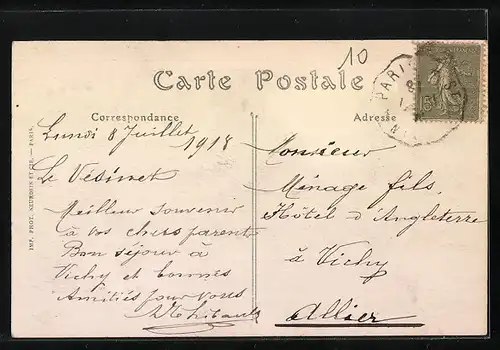 10
Carte Postale
Correspondance
Adresse
Lundi 8 Juillet
1918
Le Vésinet
Meilleur souvenir
à vos chers parents
Bon séjour à
Vichy et bonnes
Amitiés pour vous
Monsieur
Ménage fils,
Hôtel d'Angleterre
à Vichy
Allier
IMP. PHOT. NEURDEIN ET CIE. — PARIS.
PARIS